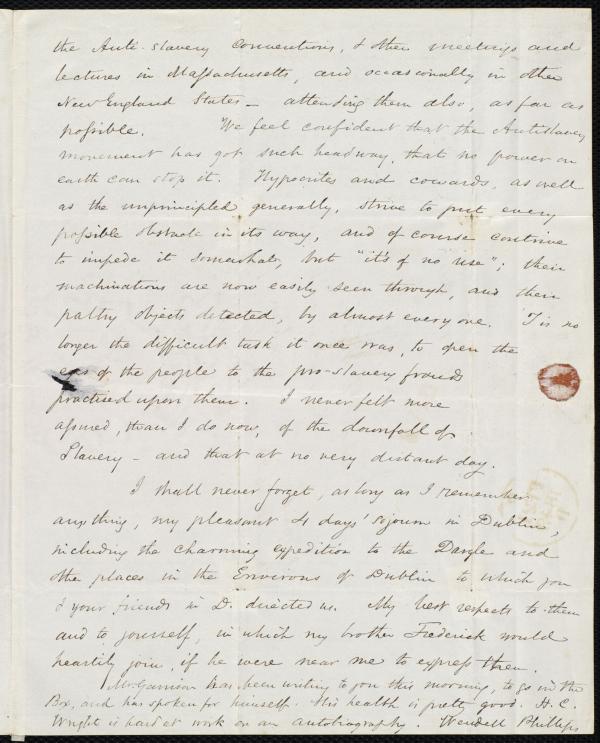 the Anti-slavery conventions, & other meetings and
lectures in Massachusetts, and occasionally in other
New England States — attending them also, as far as
possible. We feel confident that the Antislavery
movement has got such headway, that no power on
earth can stop it. Hypocrites and cowards, as well
as the unprincipled generally, strive to put every
possible obstacle in its way, and of course contrive
to impede it somewhat, but "it's of no use"; their
machinations are now easily seen through, and their
paltry objects detected, by almost every one. 'Tis no
longer the difficult task it once was, to open the
eyes of the people to the pro-slavery frauds
practised upon them. I never felt more
assured, than I do now, of the downfall of
Slavery — and that at no very distant day.
I shall never forget, as long as I remember
anything, my pleasant 4 days' sojourn in Dublin,
including the charming expedition to the Dargle and
other places in the Environs of Dublin to which you
& your friends in D. directed us. My best respects to them
and to yourself, in which my brother Frederick would
heartily join, if he were near me to express them.
Mr Garrison has been writing to you this morning, to go in the
Box, and has spoken for himself. His health is pretty good. H. C.
Wright is hard at work on an autobiography. Wendell Phillips